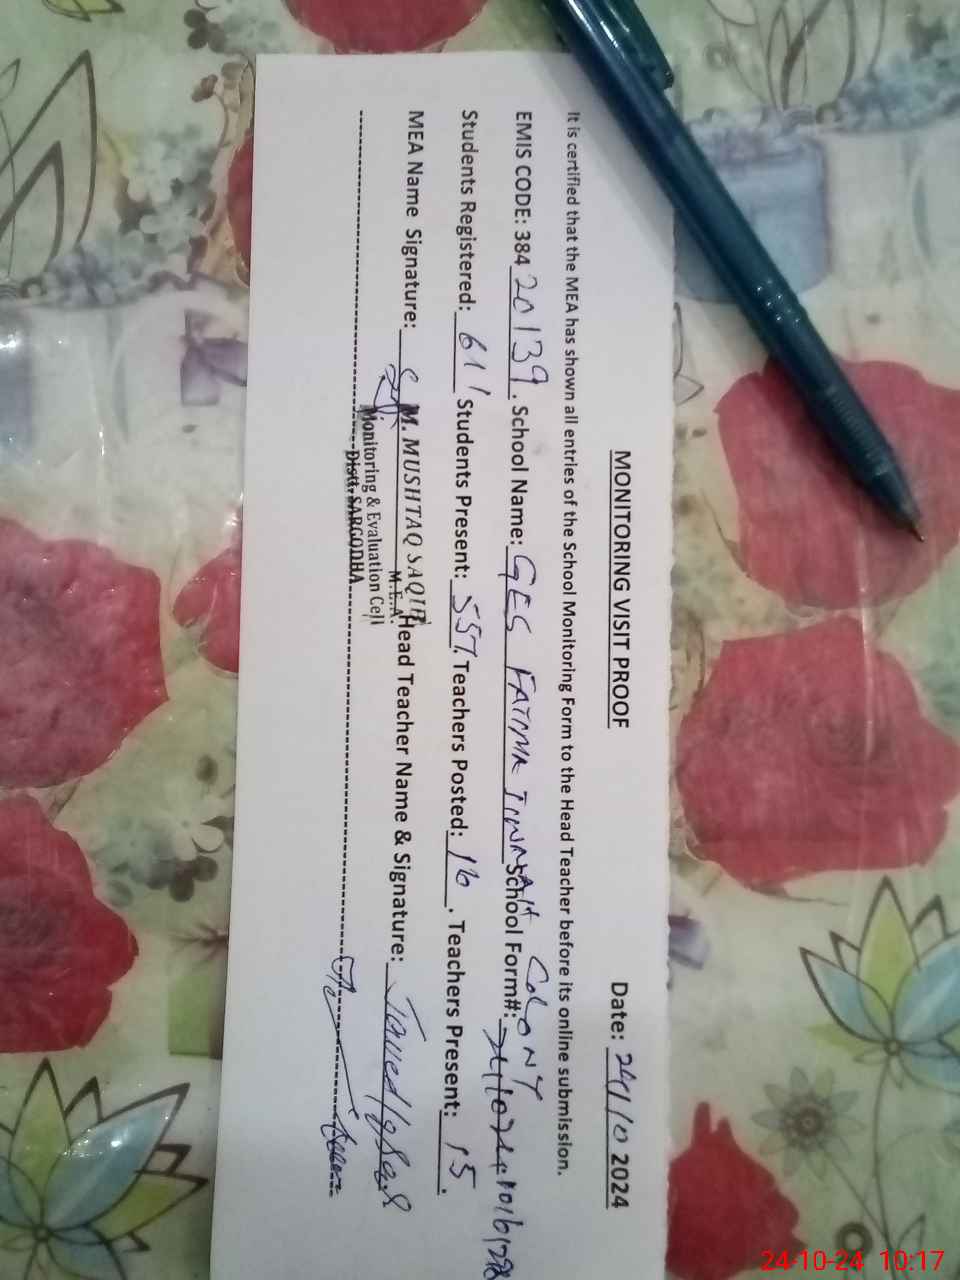 MONITORING VISIT PROOF Date: 24/10 2024
It is certified that the MEA has shown all entries of the School Monitoring Form to the Head Teacher before its online submission.
EMIS CODE: 38420139. School Name: GES FATIMA JINNAH COLONY School Form#:
Students Registered: 611 Students Present: 557. Teachers Posted: 16. Teachers Present: 15.
MEA Name Signature: M. MUSHTAQ SAQIB Head Teacher Name & Signature: Javed Iqbal
M.E.A.
Monitoring & Evaluation Cell
Distt. SARGODHA
24-10-24 10:17